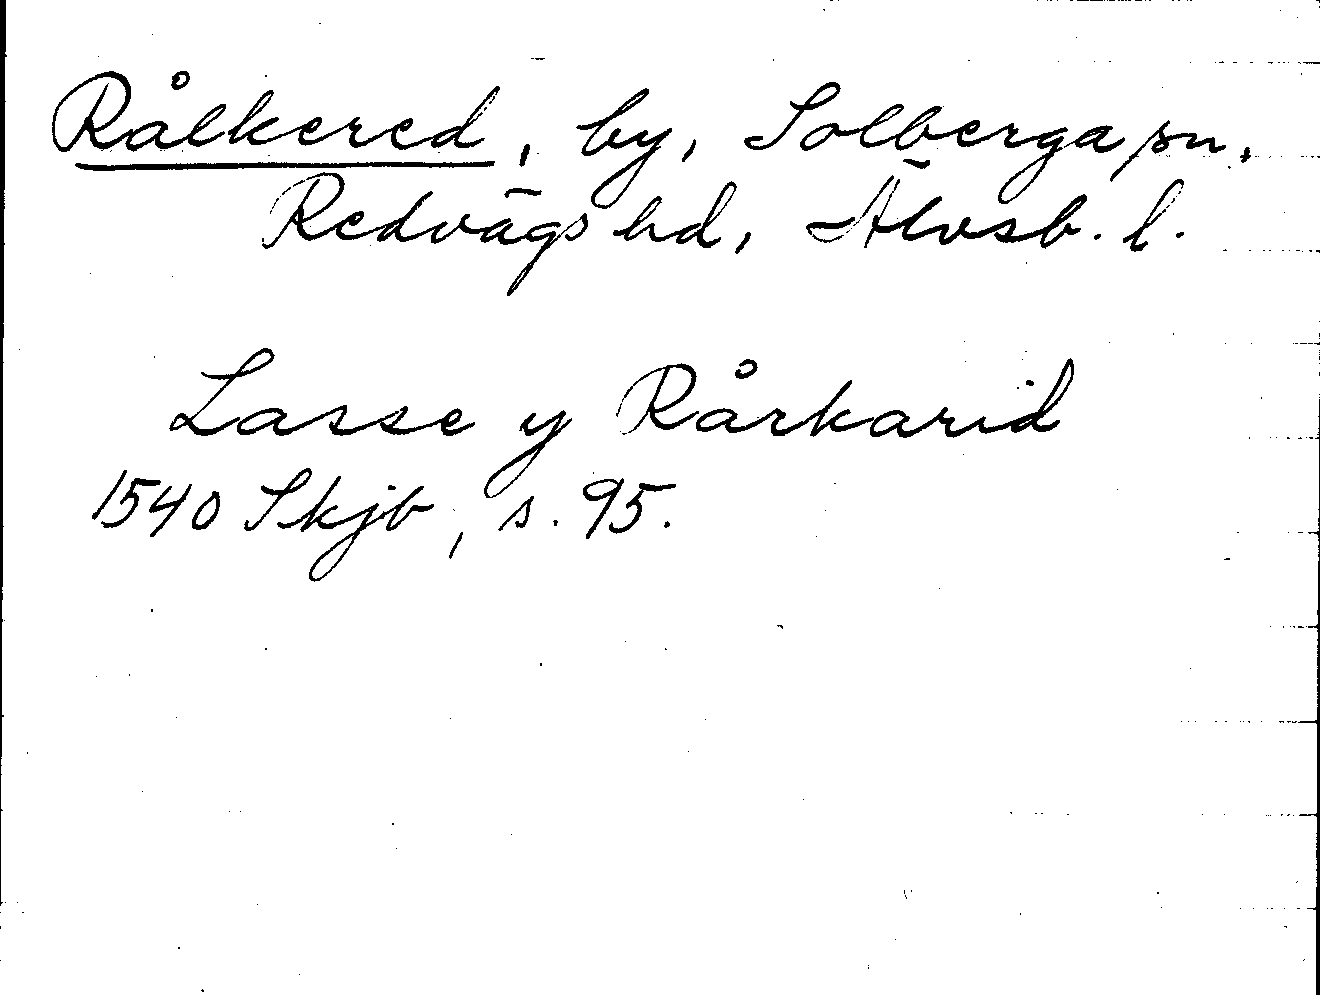 Rålkered, by, Solberga sn,
Redvägs hd, Älvsb. l.
Lasse y Rårkarid
1540 Skjb, s. 95.